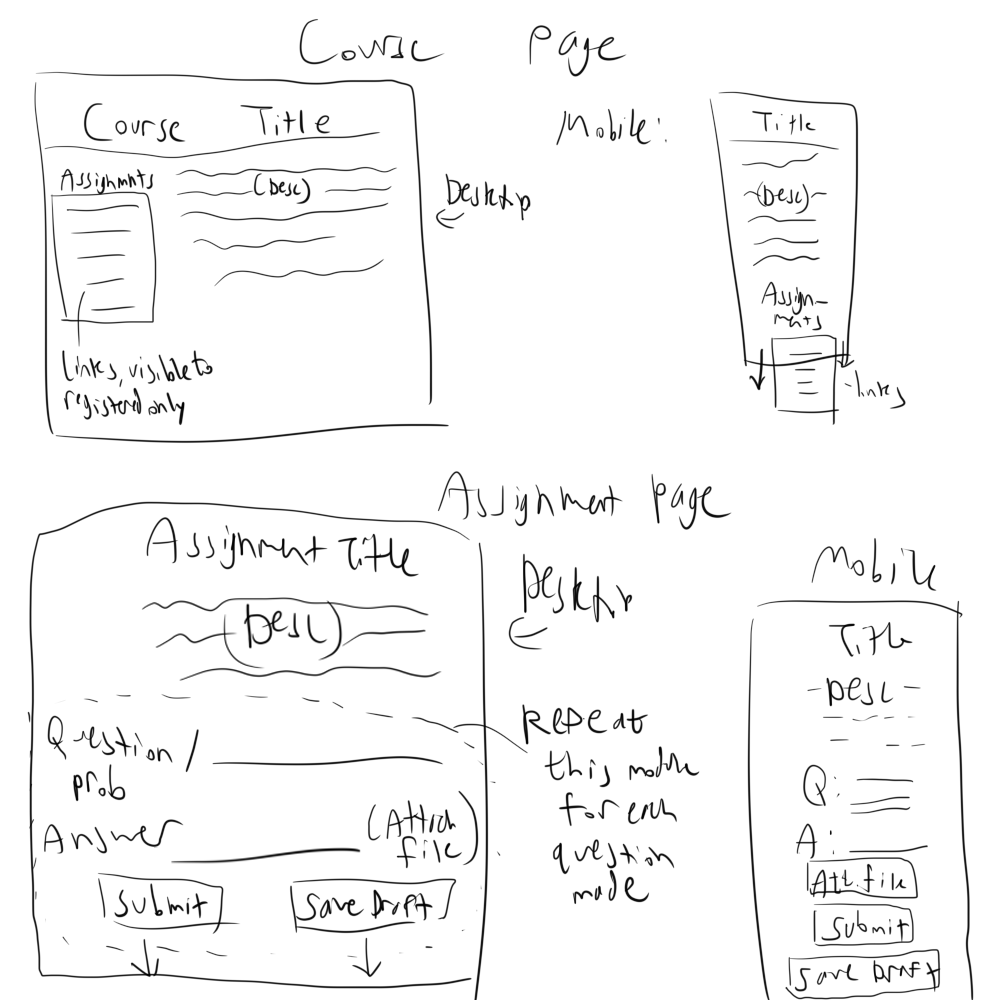 Course Page
Course Title
Assignmnts
(Desc)
Desktop
Links, visible to
registered only
Mobile:
Title
(Desc)
Assign-
ments
-links
Assignment page
Assignment Title
Desc
Desktop
Question/
prob
Answer
(Attach
file)
Submit
Save Draft
REPEAT
this module
for each
question
made
Mobile
Title
-Desc-
Q:
A:
Att. file
Submit
Save Draft